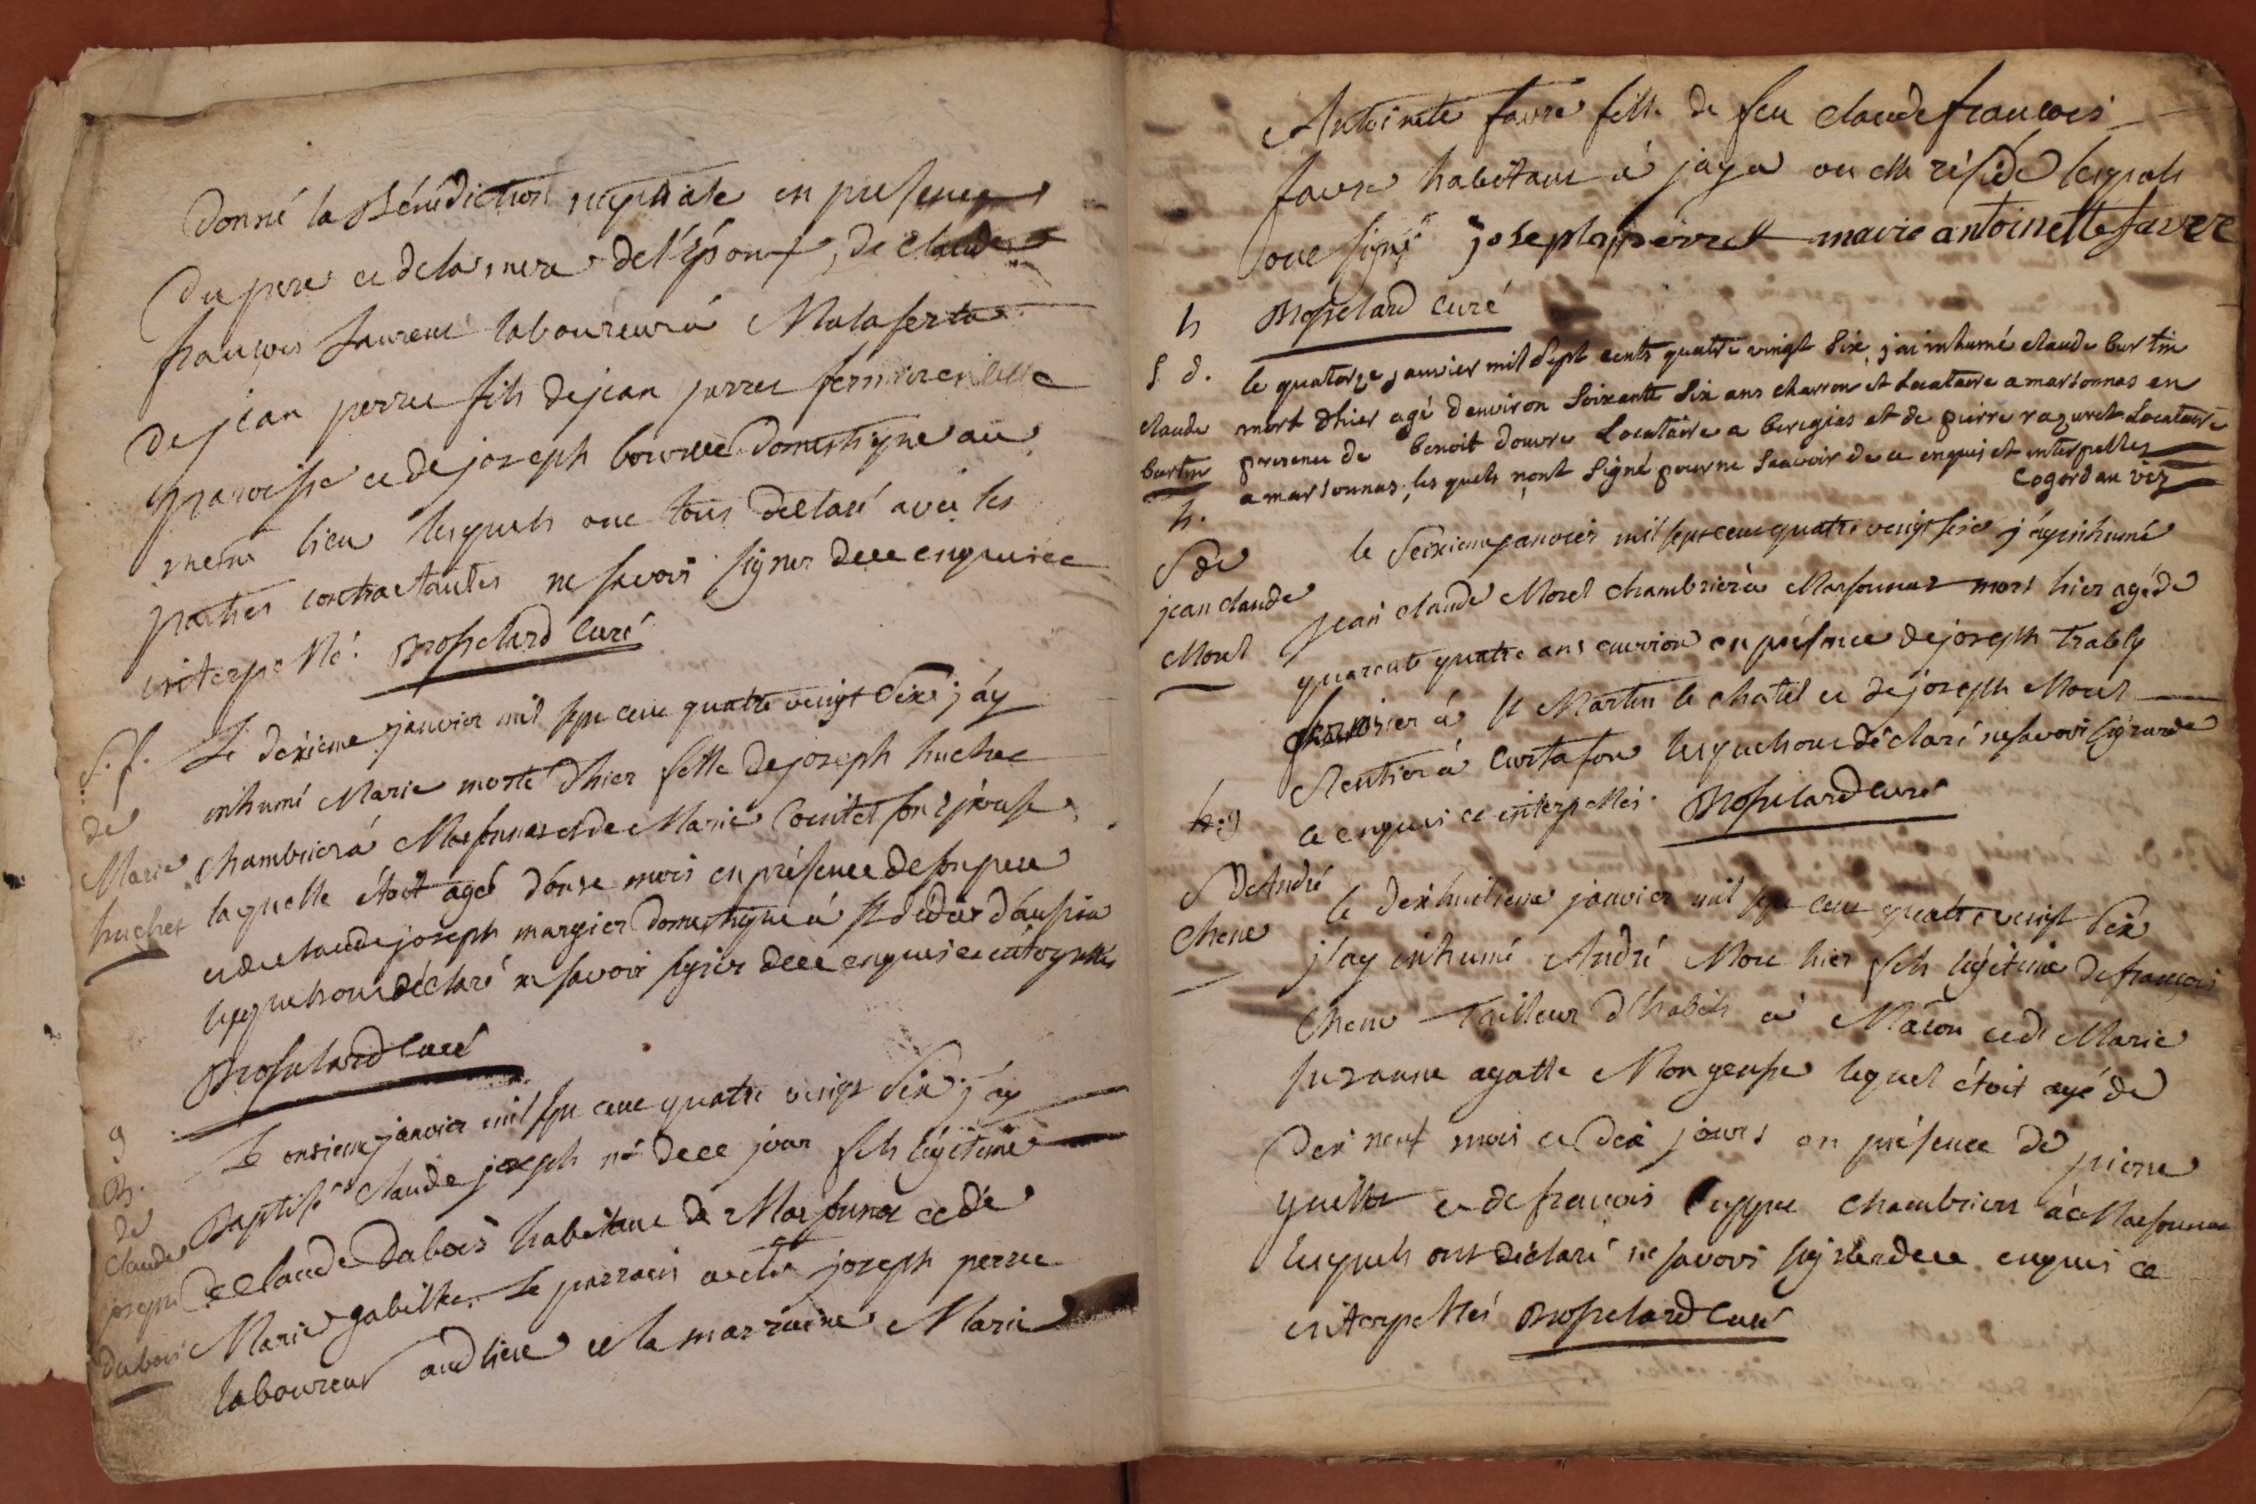 donné la Bénédiction nuptiale en presence
du pere et de la mere de l'époux, de claude
françois Laurent laboureur á Malaferta
de jean perret fils de jean perret fermier en cette
paroisse et de joseph bourret domestique au
meme lieu lesquels ont tous declaré avec les
parties contractantes ne savoir signer de ce enquis et
interpellé. Brosselard Curé
S. f.
de
Marie
huchet
Le dixieme janvier mil sept cent quatre vingt Six j'ay
inhumé Marie morte d'hier fille de joseph huchet
chambrier á Marsonnas et de Marie Couitet son épouse
laquelle étoit agé d'onze mois en présence de son pere
et de claude joseph margier domestique á St didier d'aussia
lesquels ont déclaré ne savoir signer de ce enquis et interpellés
Brosselard Curé
9
B.
de
Claude
joseph
dubois
Le onzieme janvier mil sept cent quatre vingt Six j'ay
Baptisé claude joseph né de ce jour fils légitime
de Claude Dubois habitant de Marsonnas et de
Marie gabillet. Le parrain a été joseph perret
laboureur audit lieu et la marraine Marie
Antoinette favre fille de feu claude francois
favre habitant á jaya ou elle réside lesquels
ont signé joseph perret marie antoinette favre
Brosselard Curé
h
S d.
claude
burtin
le quatorze janvier mil Sept cents quatre vingt Six j'ai inhumé claude burtin
mort d'hier agé d'environ Soixante Six ans charron et Locataire a marsonnas en
presence de benoit douvre Locataire a beregias et de pierre razuret Locataire
a marsonnas, les quels n'ont Signé pour ne Scavoir de ce enquis et interpellés
Cogordan vic
h.
S de
jean claude
Morel
le Seizieme janvier mil sept cent quatre vingt Six j'ay inhumé
jean claude Morel chambrier á Marsonnas mort hier agé de
quarante quatre ans environ en présence de joseph Trably
fermier á St Martin le chatel et de joseph Morel
Rentier á Curtafon lesquels ont déclaré ne savoir signer de
ce enquis et interpellés. Brosselard Curé
h.
S d'André
Chene
le dixhuitieme janvier mil sept cent quatre vingt Six
j'ay inhumé André Mort hier fils légitime de françois
Chene Tailleur d'habits á Mâcon et de Marie
suzanne agathe Mongeusse lequel étoit agé de
dix neuf mois et dix jours en présence de pierre
et de francois chambriers á Marsonnas
lesquels ont déclaré ne savoir signer de ce enquis et
interpellés Brosselard Curé